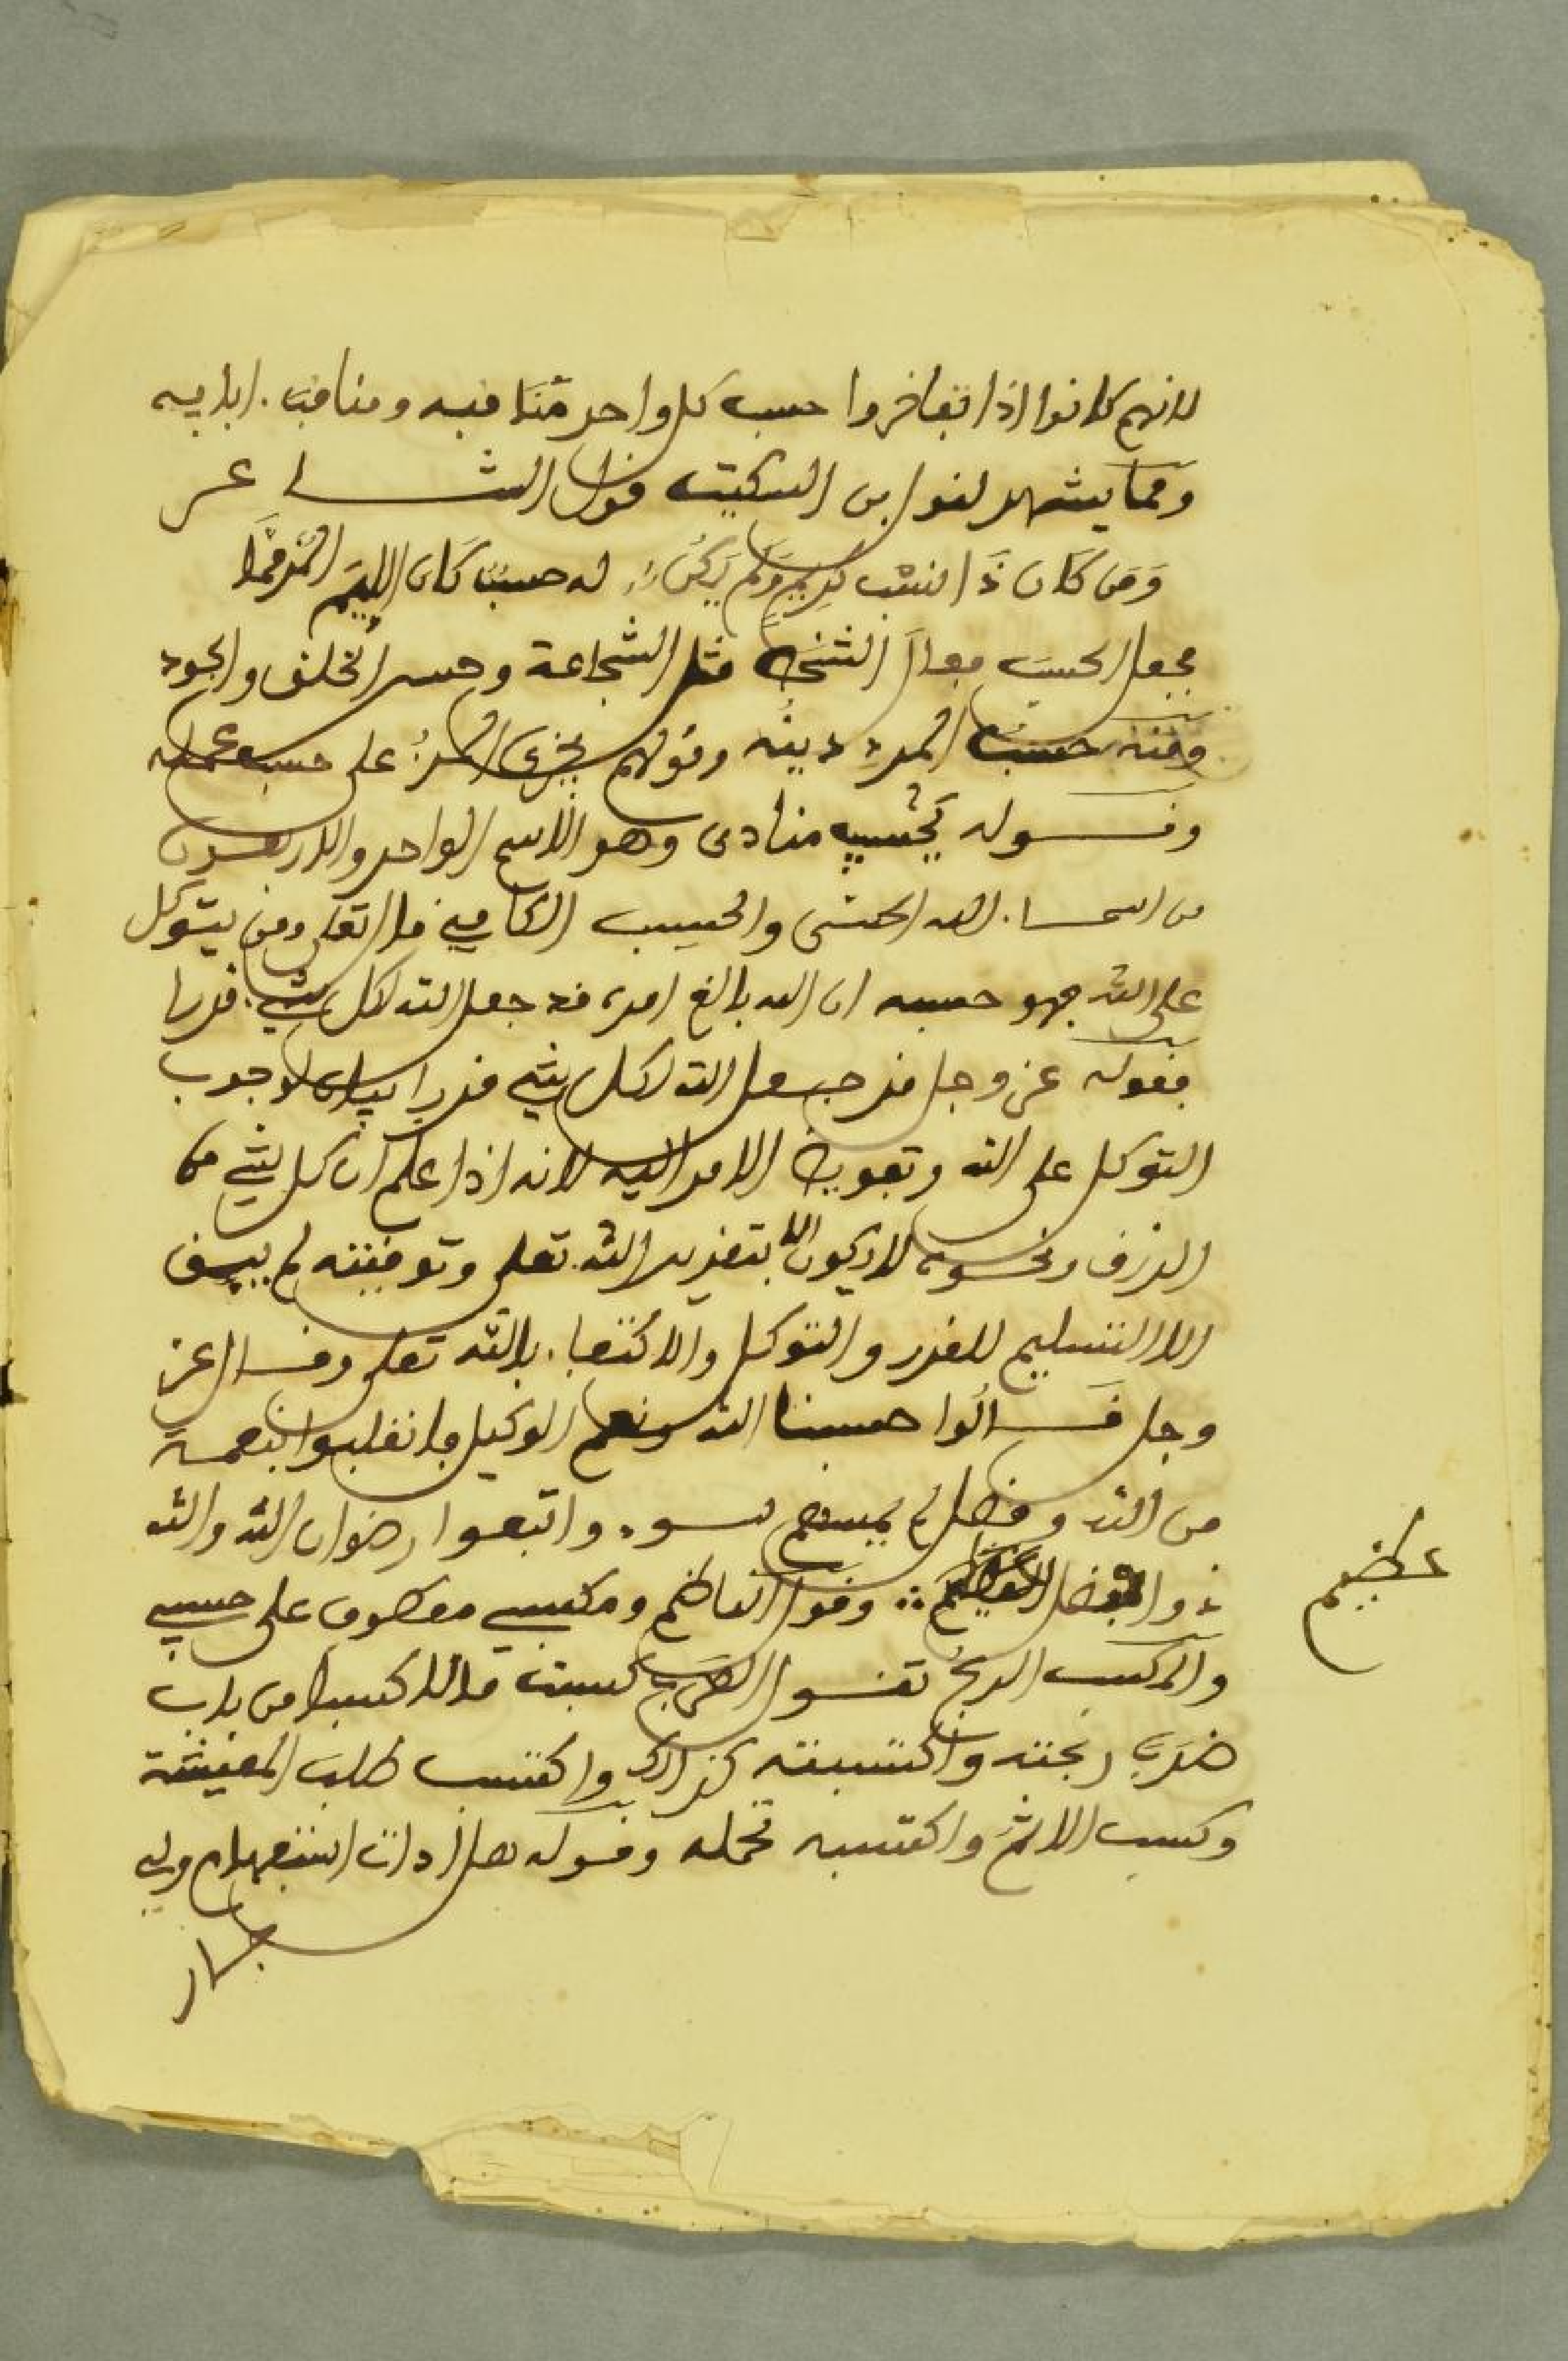 لانهم كانوا اذا تفاخروا حسب كل واحد مناقبه ومناقب ابايه
ومما يشهد لقول ابن السكيت قول الشاعر
وَمَن كَان ذَا نسب كريم ولم يكن له حسب كان اللييم المذمما
فجعل الحسب فعال الشخص مثل الشجاعة وحسن الخلق والجود
ومنه حسب المرء دينه وقولهم يجزى المرء على حسب عمله
وقوله يحسيب منادى وهو الاسم الواحد والاربعون
من اسماء الله الحسنى والحسيب الكافي قال تعلى ومن يتوكل
على الله فهو حسبه ان الله بالغ امره قد جعل الله لكل شيء قدرا
فقوله عز وجل قد جعل الله لكل شيء قدرا بيان لوجوب
التوكل على الله وتفويض الامر اليه لانه اذا علم ان كل شيء من
الرزق ونحوه لا يكون الا بتقدير الله تعلى وتوفيقه لم يبق
الا التسليم للقدر والتوكل والاكتفاء بالله تعلى وقال عز
وجل قالوا حسبنا الله ونعم الوكيل فانقلبوا بنعمة
من الله وفضل لم يمسسهم سوء واتبعوا رضوان الله والله
ذو فضل العظيم وقول الناظم ومكسبي معكوف على حسبي
عظيم
والمكسب الربح تقول العرب كسبت مالا كسبا من باب
ضرب ربحته واكتسبته كذلك واكتسب طلب المعيشة
وكسب الاثم واكتسبه تحمله وقوله هل ادات استفهام ولي
جار